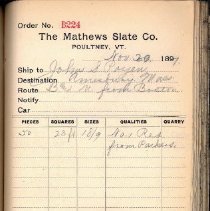 Order No. B224
The Mathews Slate Co.
POULTNEY, VT.
Nov. 20, 1897
Ship to John S. Poyen
Destination Amesbury Mass
Route B & M from Boston
Notify
Car
PIECES SQUARES SIZES QUALITIES QUARRY
No 1 Red
from Farkers.